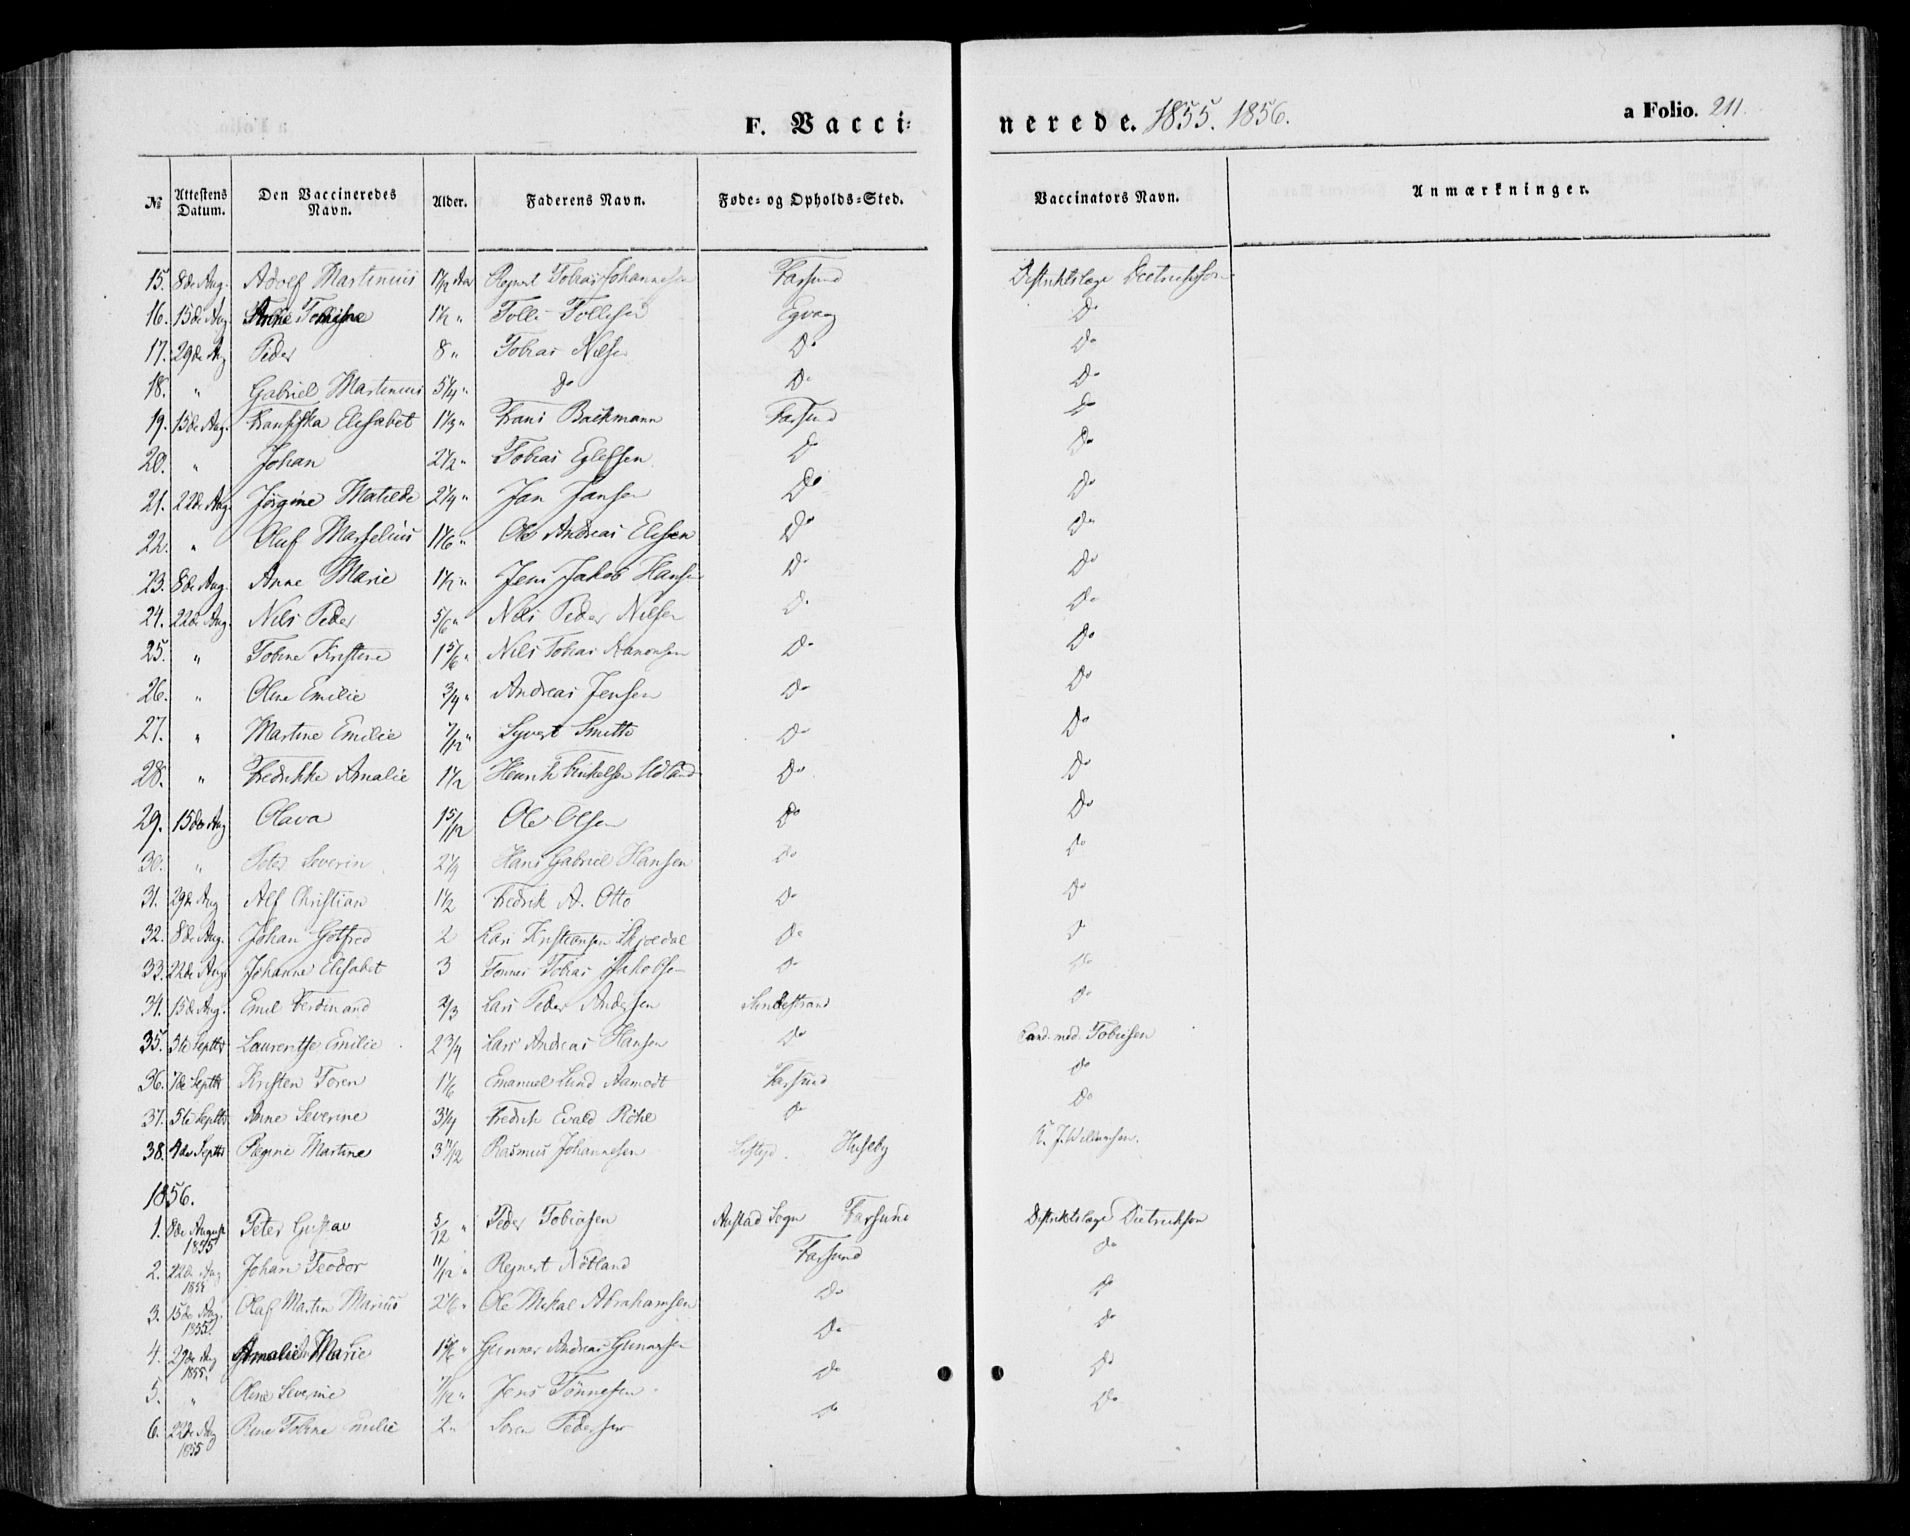 F. Vacci=nerede. 1855. 1856. a Folio. 211.
№ Attestens Datum. Den Vaccineredes Navn. Alder. Faderens Navn. Føde- og Opholds-Sted. Vaccinators Navn. Anmærkninger.
15. 8de Aug. Adolf Martinius 1 1/2 Aar Tobias Johannesen Farsund Distriktslæge Dietrichson
16. 15de Aug 1 1/2 " Tolli Tollisen Egvaag Do
17. 29de Aug Peder 8 " Tobias Nilsen Do Do
18. " Gabriel Martinius 5 1/4 " do Do Do
19. 15de Aug. Fransiska Elisabet 1 1/3 " Frans Backmann Farsund Do
20. " Johan 2 1/2 " Tobias Eglefsen Do Do
21. 22de Aug. Jørgine Matilde 2 1/4 " Jan Jansen Do Do
22. " Oluf Marselius 1 1/6 " Ole Andreas Elisen Do Do
23. 8de Aug. Anne Marie 1 1/2 " Jens Jakob Hansen Do Do
24. 22de Aug. Nils Peder 5/6 " Nils Peder Nilsen Do Do
25. " Tobine Kristine 1 5/6 " Nils Tobias Aanonsen Do Do
26. " Olene Emilie 3/4 " Andreas Jensen Do Do
27. " Martine Emilie 7/12 " Syvert Smith Do Do
28. " Fredrikke Amalie 1 1/2 Henrik Udland Do Do
29. 15de Aug Olava 1 5/12 Ole Olsen Do Do
30. " Peter Severin 2 1/4 Hans Gabriel Hansen Do Do
31. 29de Aug Alf Christian 1 1/2 Fredrik A. Otto Do Do
32. 8de Aug. Johan Gotfred 2 Lars Kristiansen Skjoldal Do Do
33. 22de Aug. Johanne Elisabet 3 Tønnes Tobias Jakobsen Do Do
34. 15de Aug. Emil Ferdinand 2/3 Lars Peder Andersen Sundestrand Do
35. 5te Septbr Laurentse Emilie 2 3/4 Lars Andreas Hansen Do Cand. med. Tobiesen
36. 7de Septbr Kristen Toren 1 1/6 Emanuel Lund Aamodt Farsund do
37. 5te Septbr Anne Severine 3 1/4 Fredrik Evald Röhe Do Do
38. 4de Septbr Regine Martine 3 1/12 Rasmus Johannesen Huseby
1856.
1. 8de August 1855 Peter Gustav 5/12 " Peder Tobiasen Anstad Sogn Farsund Distriktslæge Dietrichson
2. 22de Aug 1855 Johan Teodor 11/12 " Regnert Nötland Farsund do
3. 15de Aug. 1855. Olaf Martin Marius 2 1/6 " Ole Mikal Abrahamsen Do Do
4. 29de Aug 1855. Amalie Marie 1 5/6 " Gunner Andreas Gunnersen Do Do
5. " Olene Severine 7/12 " Jens Tönnesen Do Do
6. 22de Aug 1855 Tobine Emilie 2 " Soren Pedersen do Do